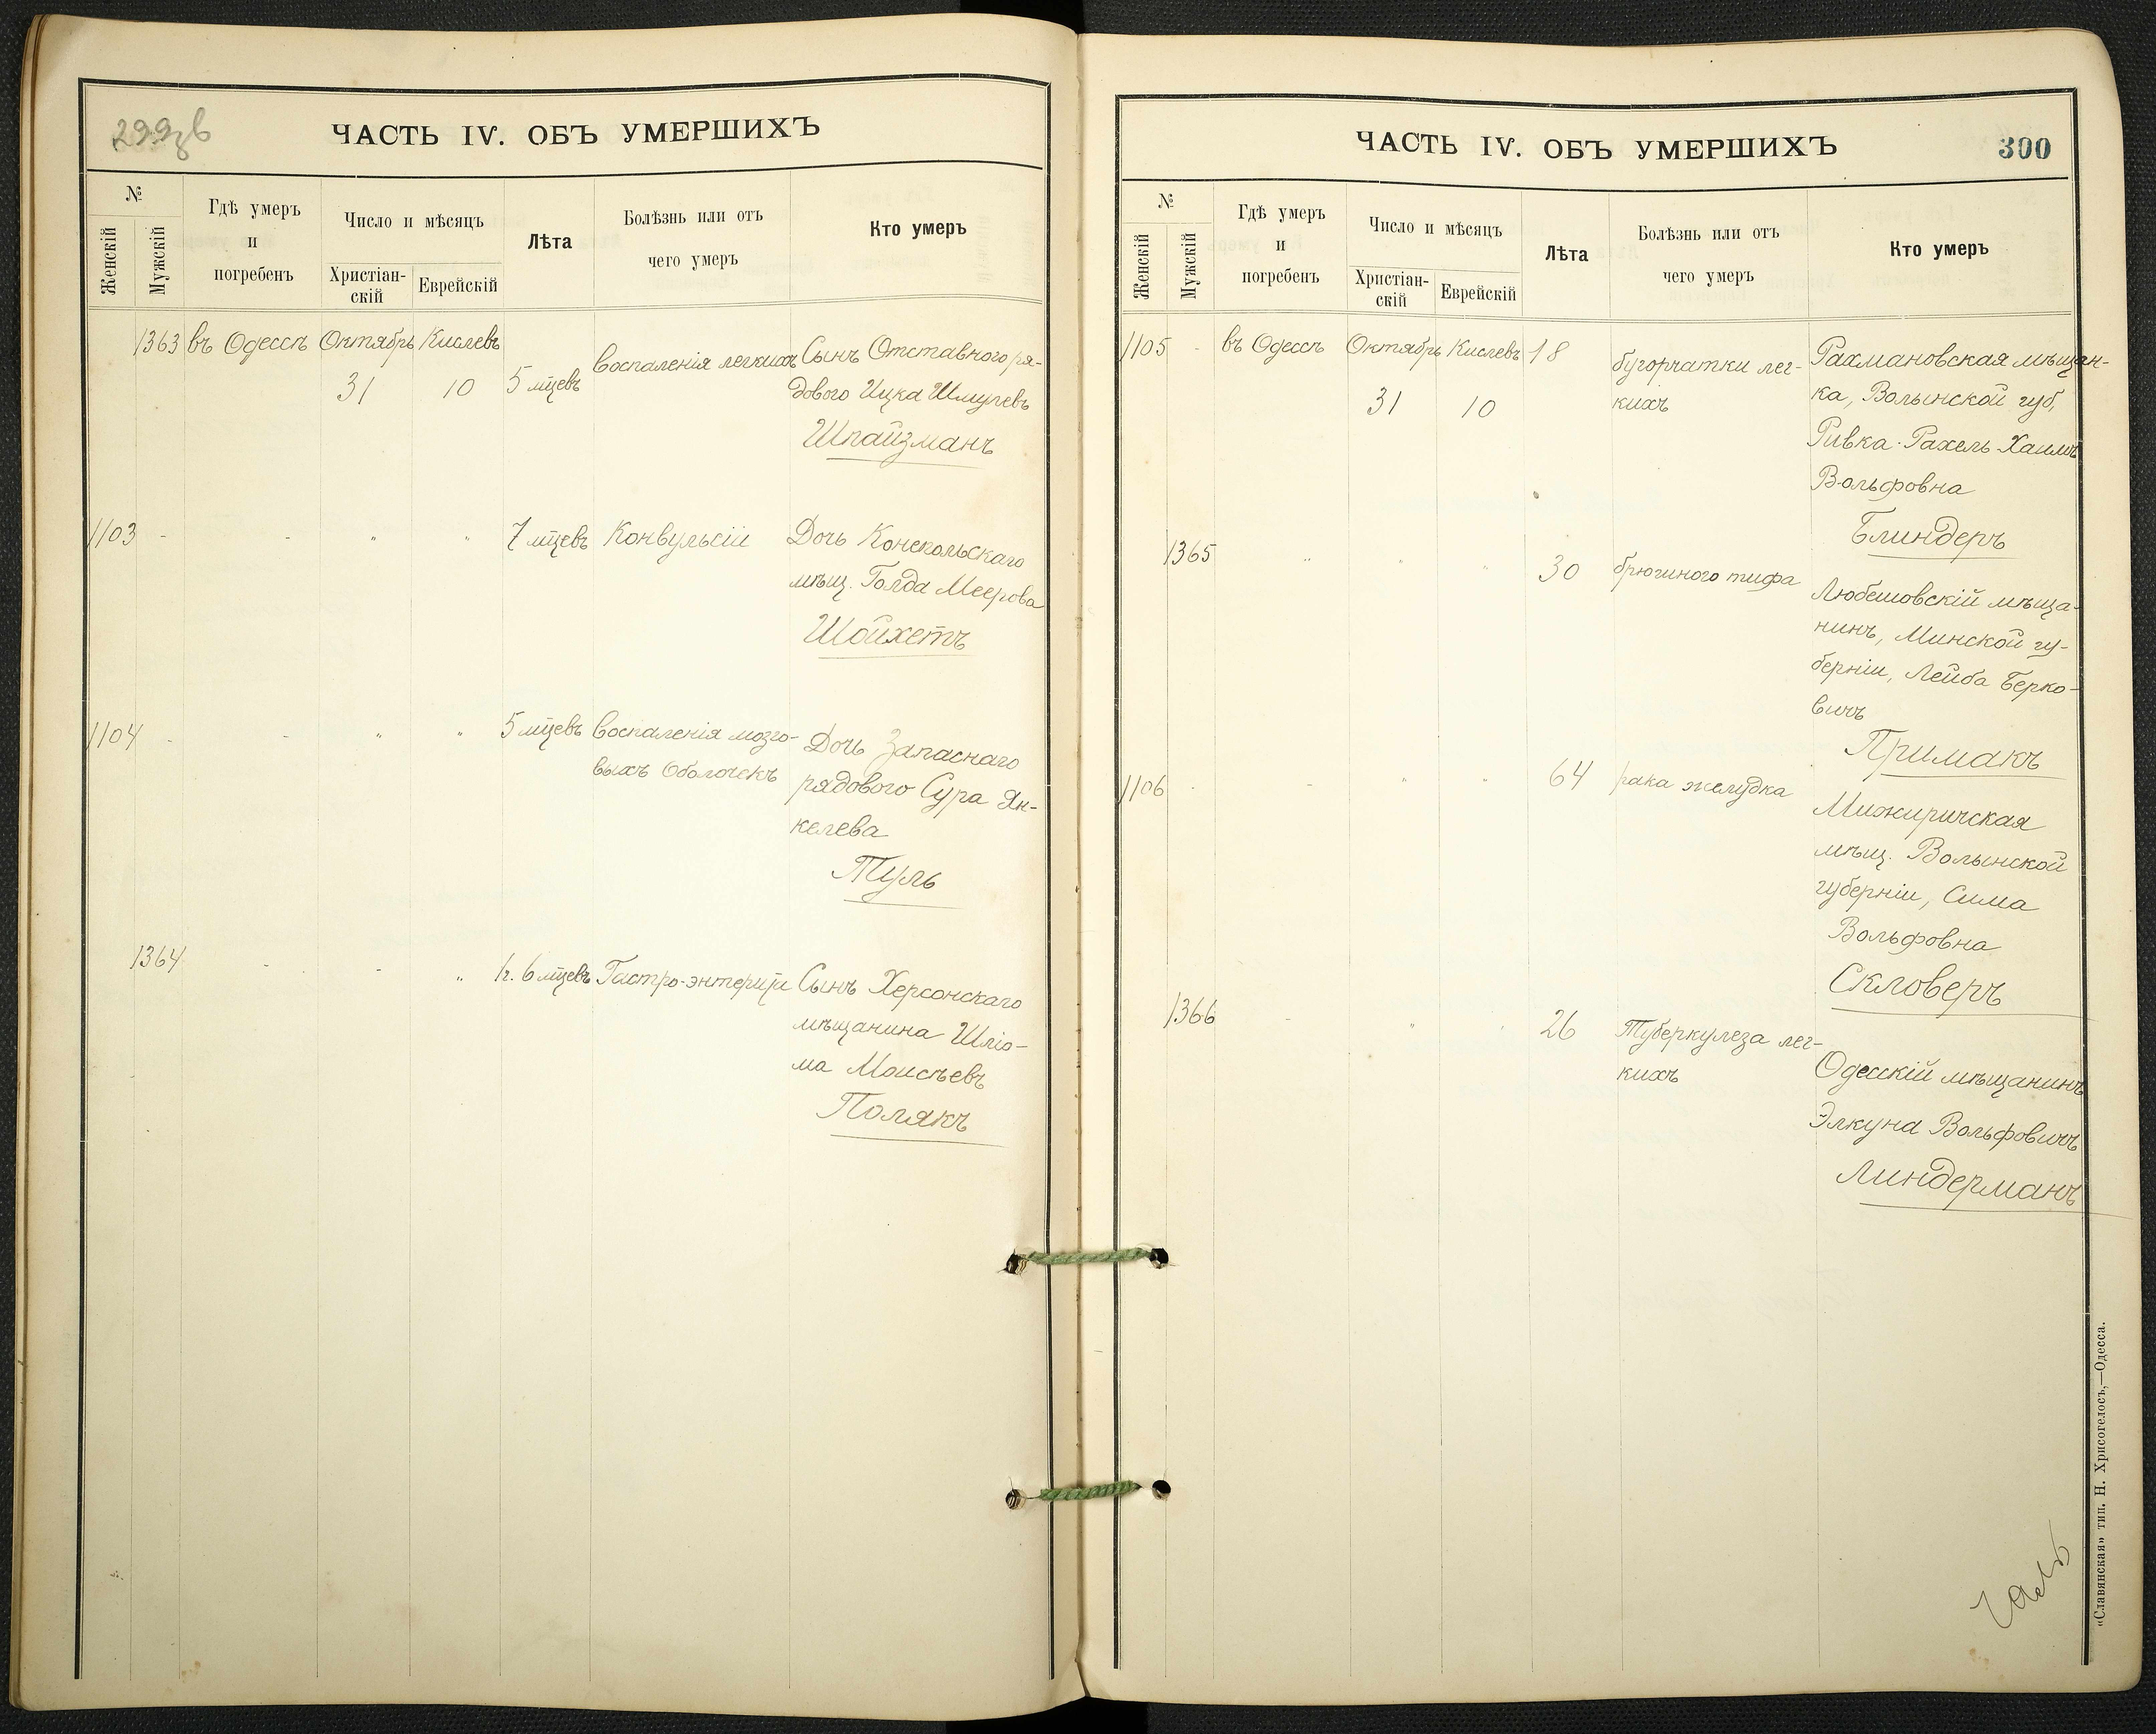 299об
ЧАСТЬ IV. ОБЪ УМЕРШИХЪ
№
Женскій
Мужскій
Гдѣ умеръ
и
погребенъ
Число и мѣсяцъ
Христіан-
скій
Еврейскій
Лѣта
Болѣзнь или отъ
чего умеръ
Кто умеръ
1363 въ Одессѣ Октябрь Кислевъ
31 10 5 мѣцевъ
воспаленія легкихъ
Сынъ Отставного ря-
дового Ицка Шмулевъ
Шпайзманъ
1103 - - " " 7 мѣцевъ Конвульсіи
Дочь Конскольскаго
мѣщ. Голда Меерова
Шойхетъ
1104 - - " " 5 мѣцевъ воспаленія мозго-
выхъ оболочекъ
Дочь Запаснаго
рядового Сура Ян-
келева
Туль
1364 - - " 1г. 6 мѣцевъ Гастро-энтерита
Сынъ Херсонскаго
мѣщанина Шліо-
ма Моисѣевъ
Полякъ
ЧАСТЬ IV. ОБЪ УМЕРШИХЪ
300
№
Женскій
Мужскій
Гдѣ умеръ
и
погребенъ
Число и мѣсяцъ
Христіан-
скій
Еврейскій
Лѣта
Болѣзнь или отъ
чего умеръ
Кто умеръ
1105 - въ Одессѣ Октябрь Кислевъ 18
31 10
бугорчатки лег-
кихъ
Рахмановская мѣщан-
ка, Волынской губ,
Ривка-Рахель Хаимъ
Вольфовна
Блиндеръ
1365 " " " 30 брюшного тифа
Любешовскій мѣща-
нинъ, Минской гу-
берніи, Лейба Берко-
вичъ
Примакъ
1106 - - " " 64 рака желудка
Мижиричская
мѣщ. Волынской
губерніи, Сима
Вольфовна
Скловеръ
1366 - " " 26 Туберкулеза лег-
кихъ
Одесскій мѣщанинъ
Элкуна Вольфовичъ
Линдерманъ
«Славянская» тип. Н. Хрисогелосъ,—Одесса.